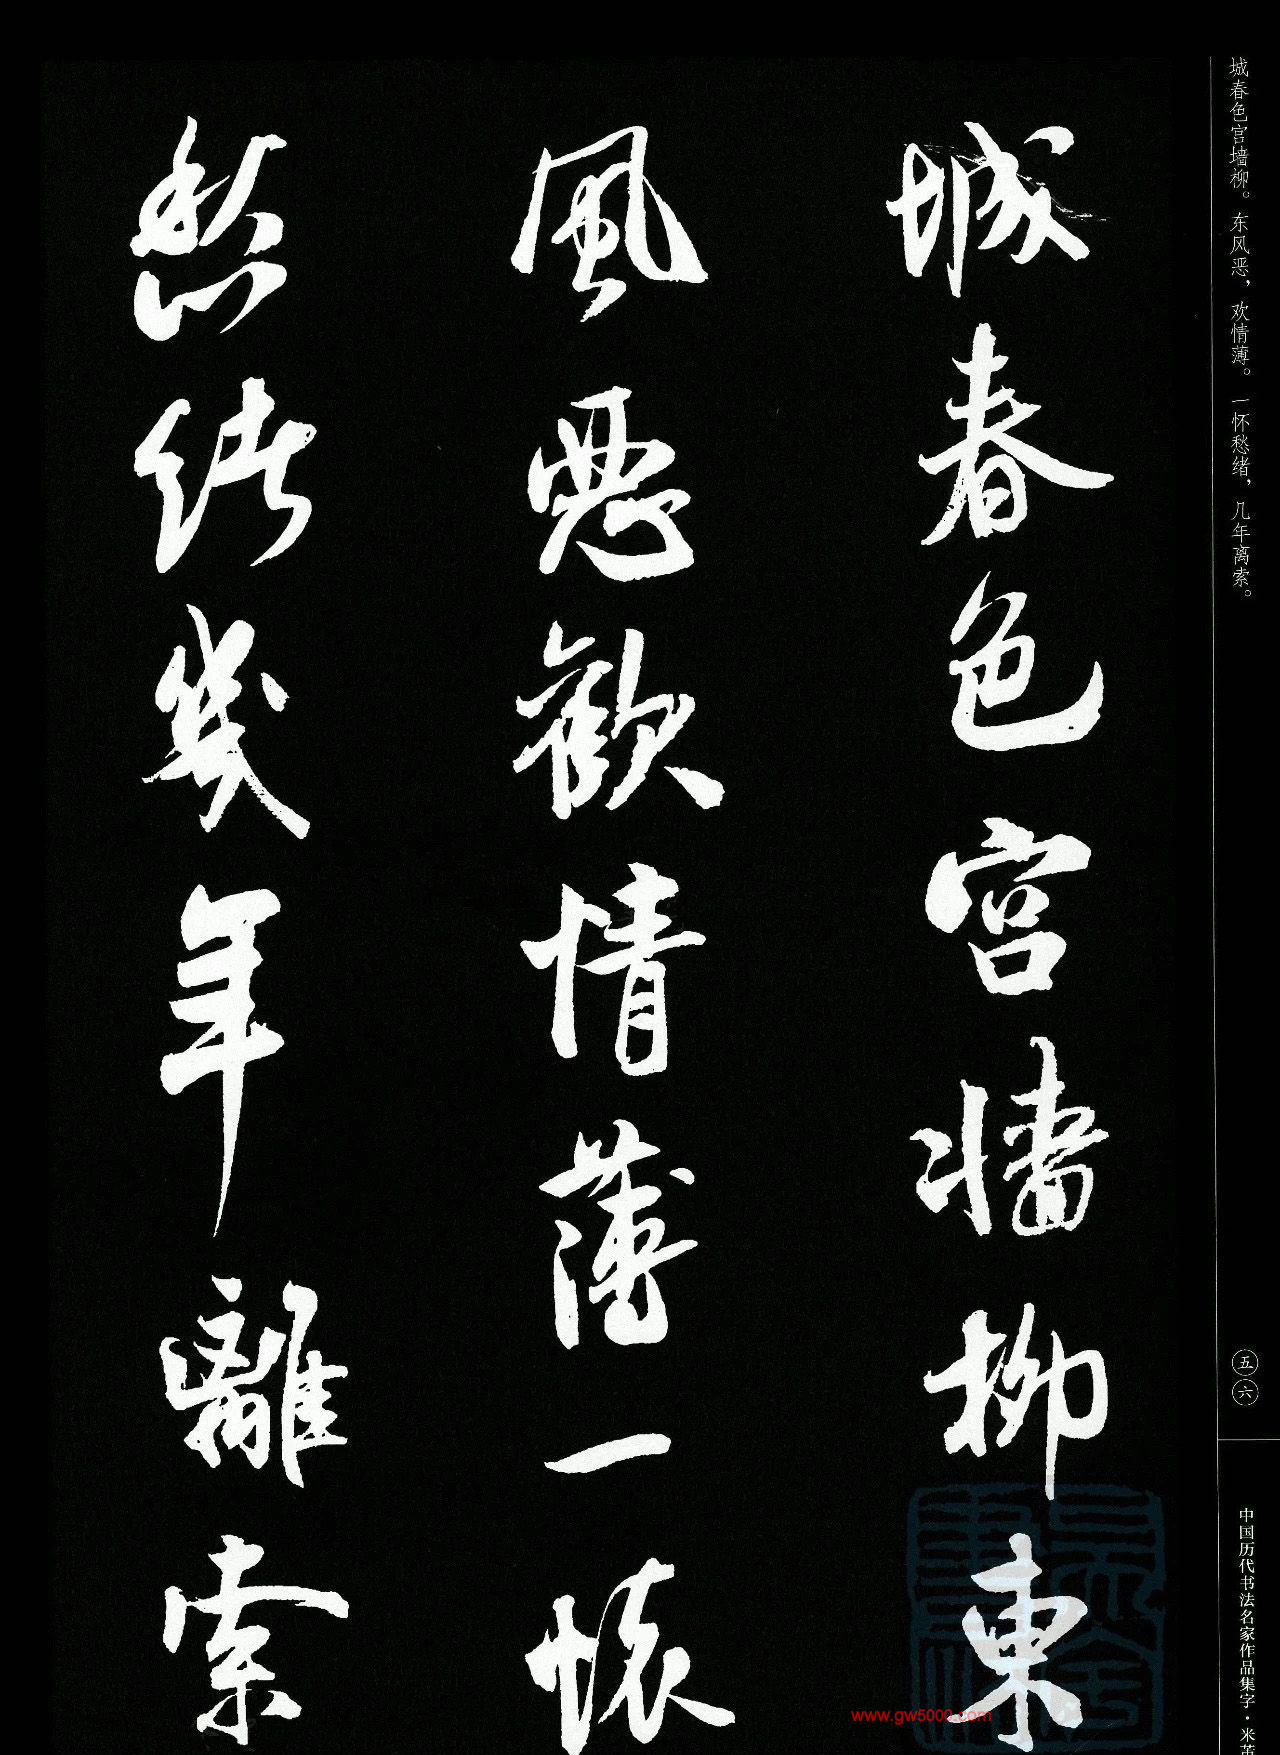 城春色宫墙柳。东风恶，欢情薄。一怀愁绪，几年离索。
城春色宫牆柳東
風惡歡情薄一懷
愁緒幾年離索
五六
中国历代书法名家作品集字·米芾
www.gw5000.com